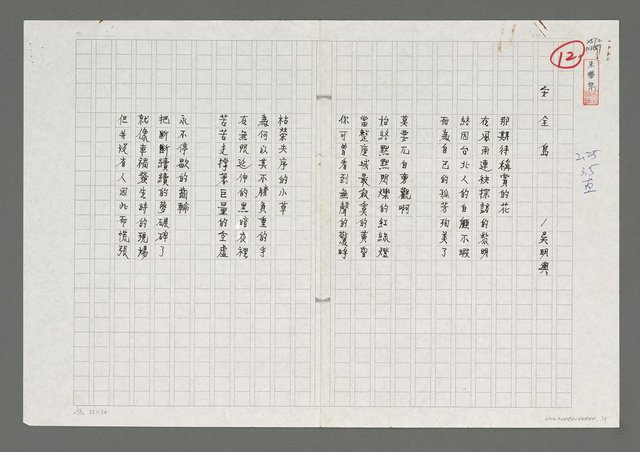 12
安全島
/吳明興
那期待稱賞的花
在風雨連袂探訪的黎明
終因台北人的自顧不暇
而為自己的孤芳殉美了
莫要兀自束觀啊
始終點點閃爍的紅綠燈
當整座城最寂寞的黃昏
你可曾看到無聲的驚呼
枯榮失序的小草
為何以其不勝負重的手
在無限延伸的黑暗夜裡
苦苦支撐著巨量的空虛
永不停歇的齒輪
把斷斷續續的夢碾碎了
就像車禍發生時的現場
但並沒有人因此而慌張